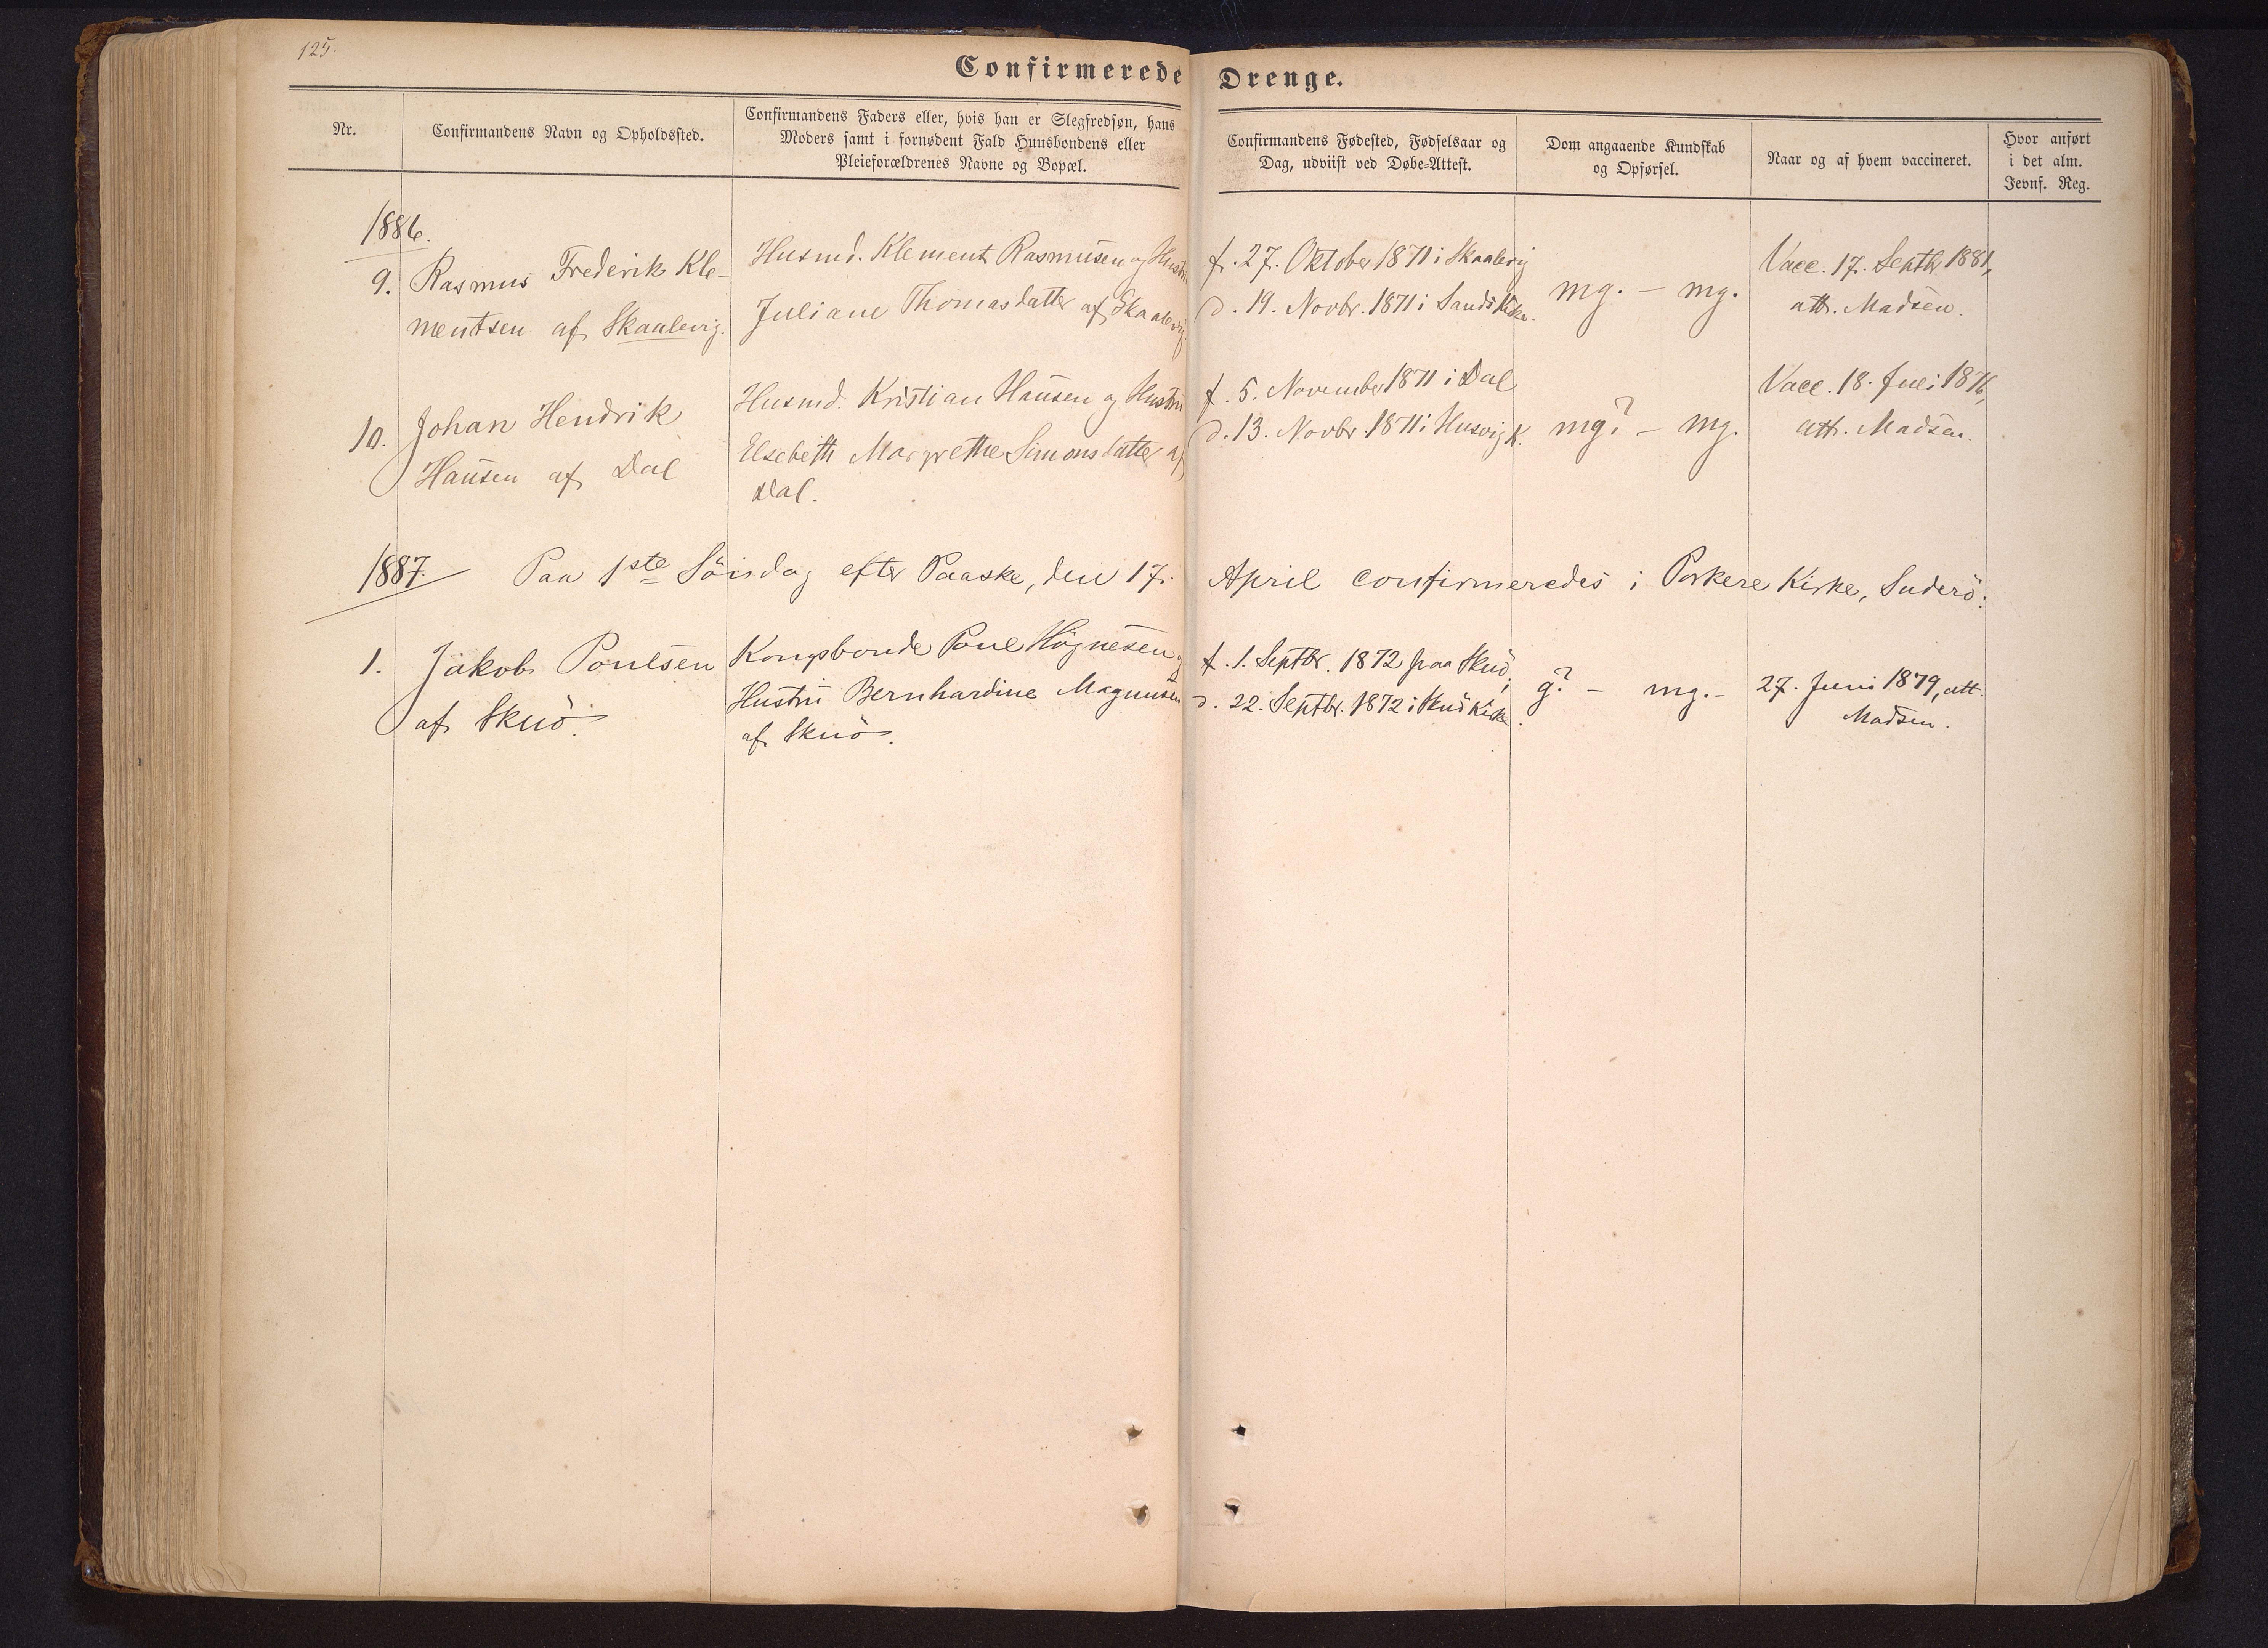 125.
Confirmerede Drenge.
Nr.
Confirmandens Navn og Opholdssted.
Confirmandens Faders eller, hvis han er Slegfredsøn, hans
Moders samt i fornødent Fald Huusbondens eller
Pleieforældrenes Navne og Bopæl.
Confirmandens Fødested, Fødselsaar og
Dag, udviist ved Døbe-Attest.
Dom angaaende Kundskab
og Opførsel.
Naar og af hvem vaccineret.
Hvor anført
i det alm.
Jevnf. Reg.
1886.
9.
Rasmus Frederik Kle-
mentsen af Skaalevig.
Husmd. Klement Rasmusen og Hustru
Juliane Thomasdatter af Skaalevig
f. 27. Oktober 1871 i Skaalevig
d. 19. Novbr. 1871 i Sands Kirke.
mg. – mg.
Vacc. 17. Septbr 1881,
att. Madsen.
10.
Johan Hendrik
Hansen af Dal
Husmd. Kristian Hansen og Hustru
Elsebeth Margrethe Simonsdatter af
Dal.
f. 5. November 1871 i Dal
d. 13. Novbr. 1871 i Husvig K.
mg? – mg.
Vacc. 18. Juli 1876,
att. Madsen.
1887. Paa 1ste Söndag efter Paaske, den 17. April confirmeredes i Porkere Kirke, Suderö:
1.
Jakob Poulsen
af Skuö.
Kongsbonde Poul Högnesen og
Hustru Bernhardine Magnusen
af Skuö.
f. 1. Septbr. 1872 paa Skuö,
d. 22. Septbr. 1872 i Skuö Kirke.
g? – mg. –
27. Juni 1879, att.
Madsen.